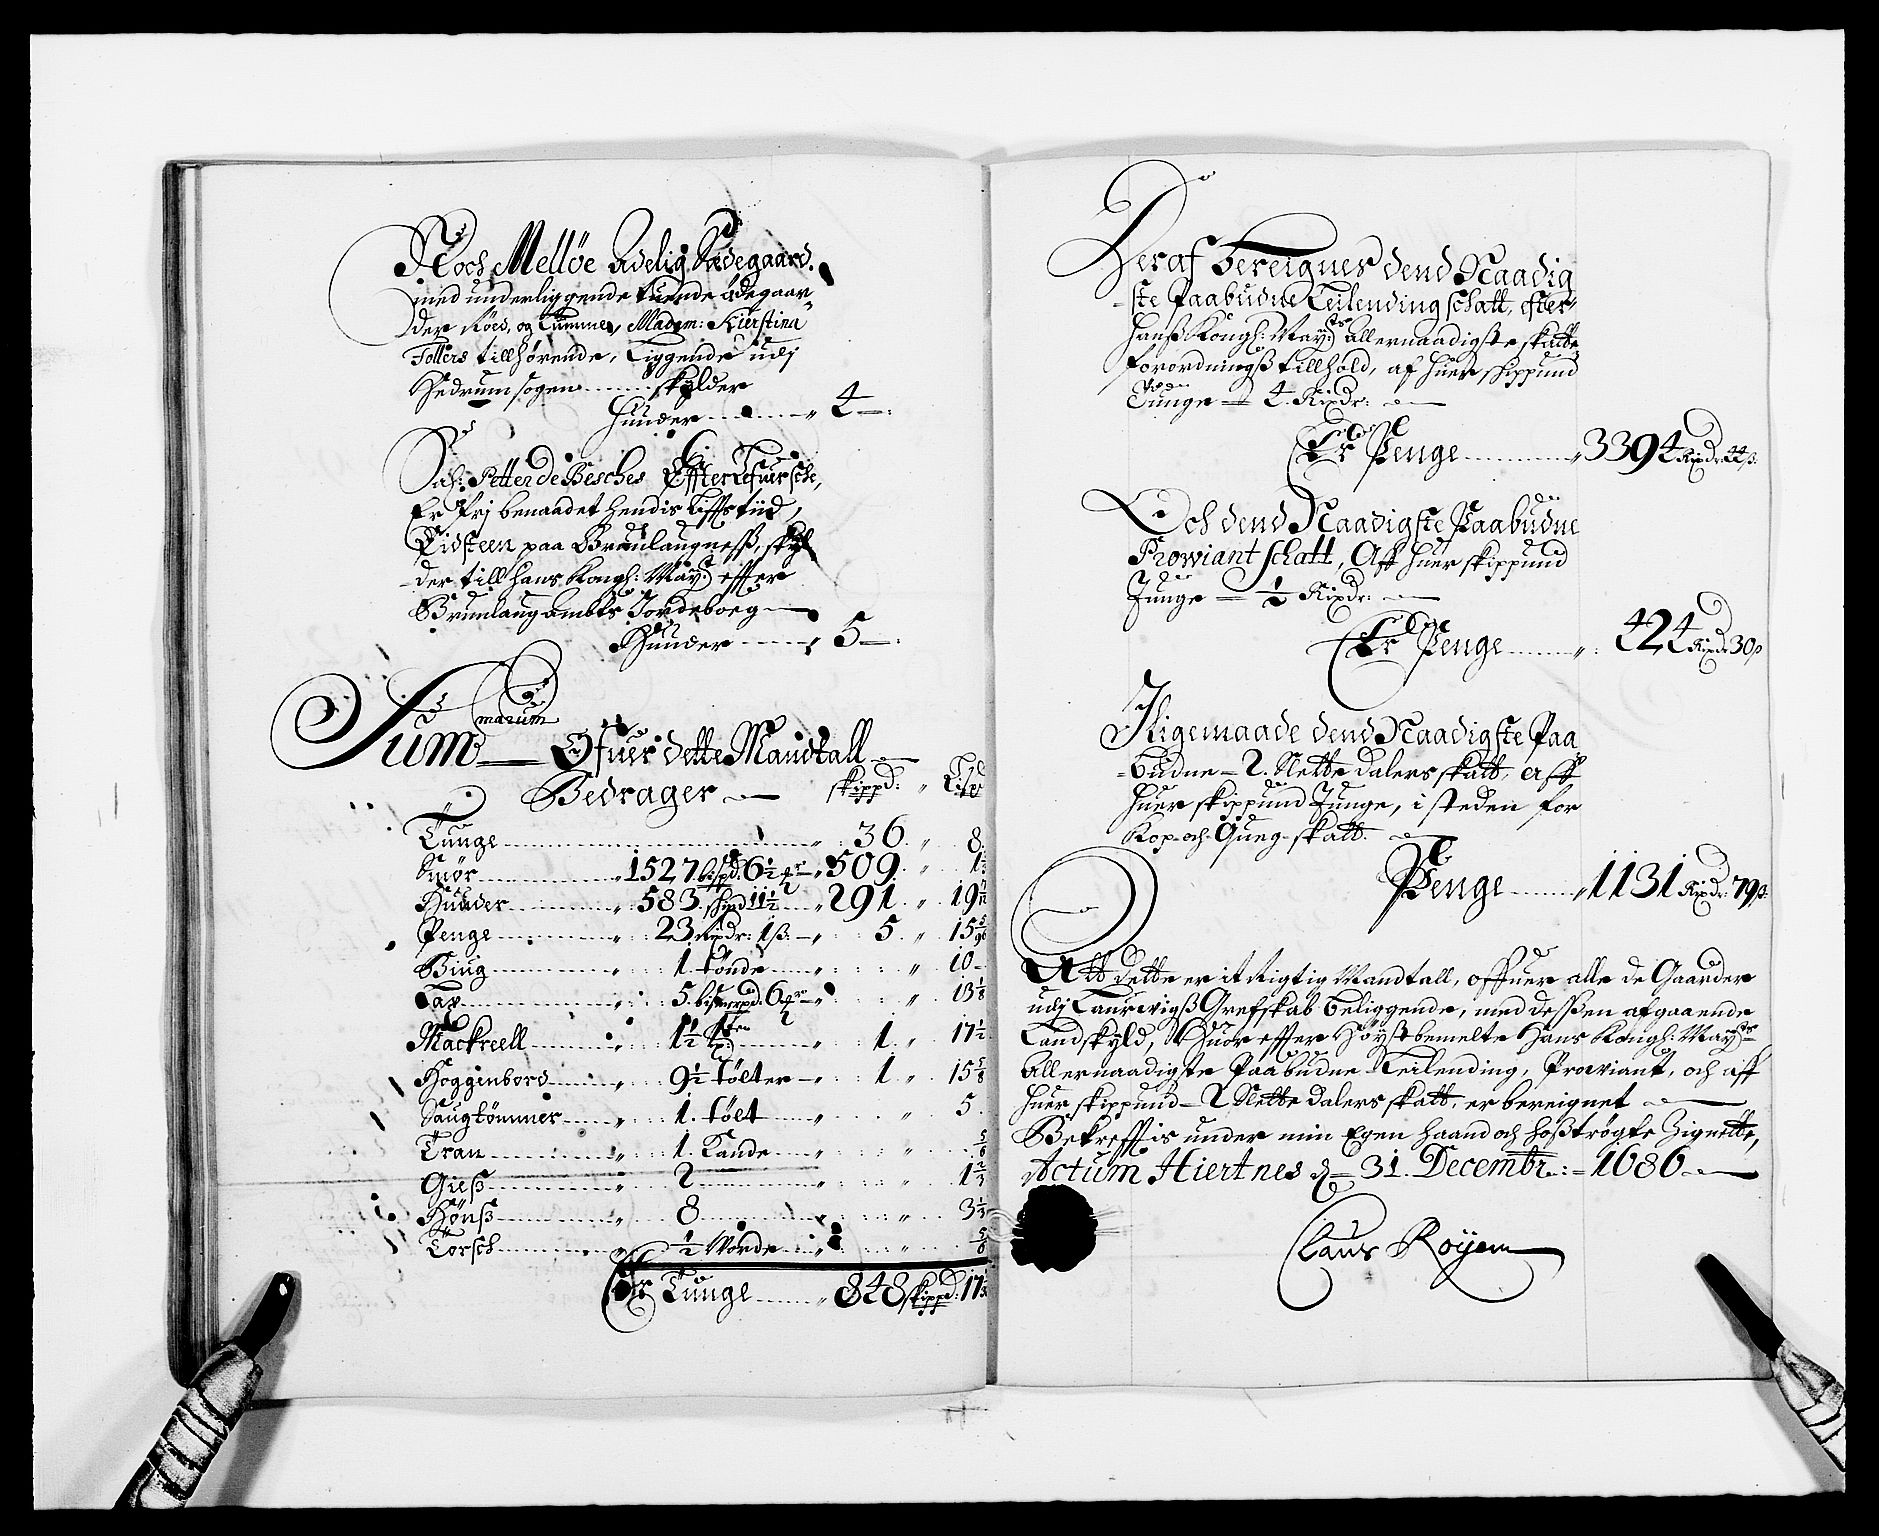 Noch Melløe Adelig Sædegaard.
med underliggende tuende ødegaar-
der Røed, og Tümmer, Madm: Kierstina
Tollers tillhørende, Liggende udj
Hedrum sogen ...... skylder
Huuder ........ 4 —:
Sal: Petter de Besches Effterlefuersche,
Er frj benaadet hendis Liffs tiid,
Eidsteen paa Brunlaugneß, skÿl
der till hans Kongl: Mayt: effter
Brunlaug ambts Jordeboeg —
Huuder ........ 5 —:
Summarum Ofuer dette Mandtall —
Bedrager — skippd: Lispd
Tunge ........ 36 8
Smør ........ 1527 bispd: 6½ mrk 509 1
Huuder ........ 583 skind 11½ 291 19
Penge ........ 23 Rixdr: 1 ß 5 15 5/96
Biug ........ 1 tønde 10
Lax ........ 5 bismerpd: 6 mrk 13 1/8
Mackreell ........ 1½ 1 17½
Hoggenbord ........ 9½ tølter 1 15 5/8
Saugtømmer ........ 1 tølt 5
Tran ........ 1 Kande 5/6
Gieß ........ 2 1
Hønß ........ 8 3⅓
Torsch ........ ½ Vorde 5/6
Er Tunge ........ 848 skippd: 17
Heraf bereignes dend Naadig
ste Paabudne Leilending schatt, efter
Hanß Kongl: Mayts: allernaadigste skatte
forordningß tillhold, af huer skippund
Tunge — 4 Rixdr: —
Er Penge ........ 3394 Rixdr 44 ß.
Och dend Naadigste Paabudne
Prowiant schatt, Aff huer skippund
Tunge — ½ Rixdr: —
Er Penge ........ 424 Rixdr 30 ß
Iligemaade dend Naadigste Paa
budne — 2. Slette dalers skatt, aff
huer skippund Tunge, i steden for
Kop- och- Queg- skatt. —
Penge ........ 1131 Rixdr: 79 ß.
Att dette er it Rigtig Mandtall, offuer alle de Gaarder
udj Laurwigß Grefskab beliggende, med desßen afgaaende
Landskyld, Huor effter Høyst bemelte Hans Kongl: Mayts
Allernaadigste Paabudne Leilending, Prowiant, och aff
huer skippund — 2 Slette dalers skatt, er bereignet —
Bekreffis under min Egen haand och hoßtrøgte Zignette,
Actum Hiertnes d: 31. Decembr: — 1686 —
Claus Røyem